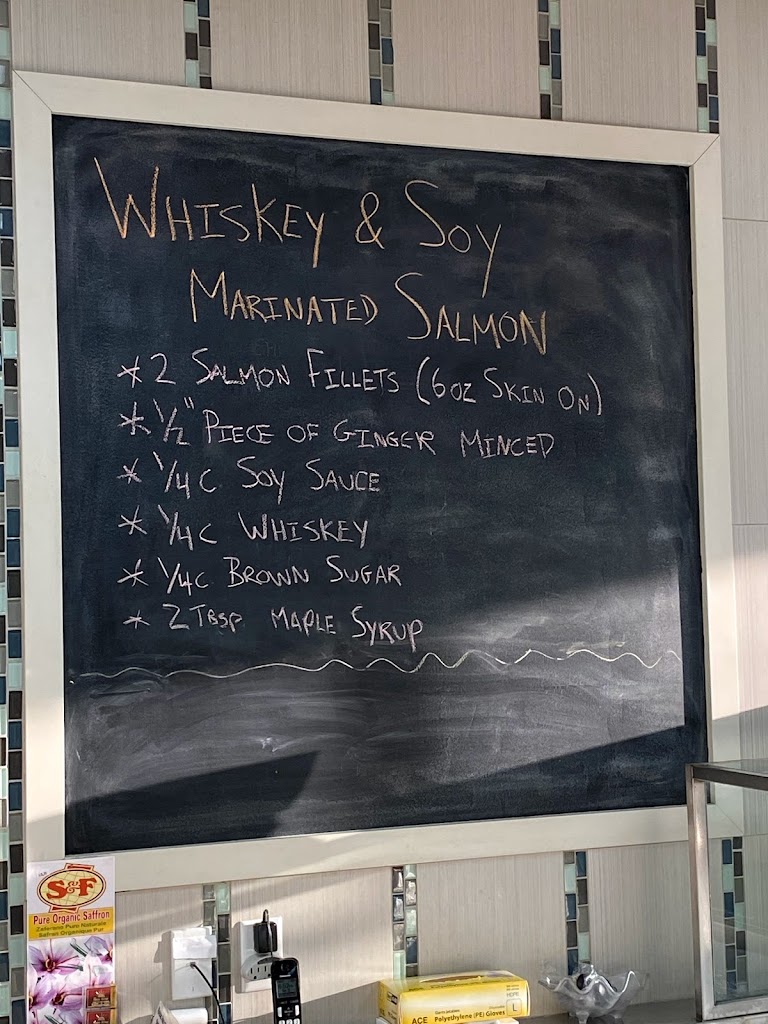 WHISKEY & SOY
MARINATED SALMON
* 2 SALMON FILLETS (6 OZ SKIN ON)
* 1/2" PIECE OF GINGER MINCED
* 1/4 C SOY SAUCE
* 1/4 C WHISKEY
* 1/4 C BROWN SUGAR
* 2 TBSP MAPLE SYRUP
S&F
Pure Organic Saffron
Zafferano Puro Naturale
Safran Organique Pur
ACE Polyethylene (PE) Gloves
HDPE
L